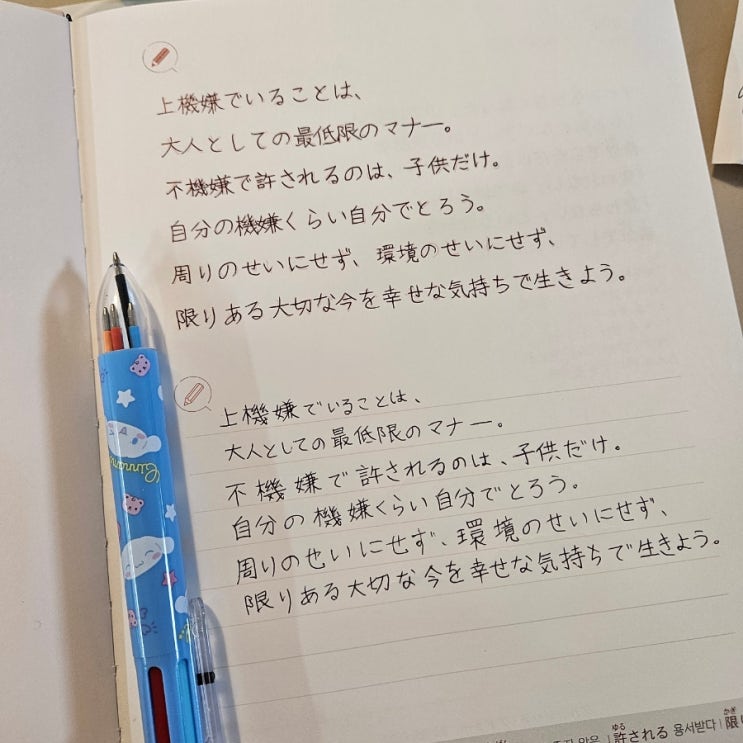 上機嫌でいることは、
大人としての最低限のマナー。
不機嫌で許されるのは、子供だけ。
自分の機嫌くらい自分でとろう。
周りのせいにせず、環境のせいにせず、
限りある大切な今を幸せな気持ちで生きよう。
上機嫌でいることは、
大人としての最低限のマナー。
不機嫌で許されるのは、子供だけ。
自分の機嫌くらい自分でとろう。
周りのせいにせず、環境のせいにせず、
限りある大切な今を幸せな気持ちで生きよう。
ゆる かぎ
許される 용서받다 | 限り